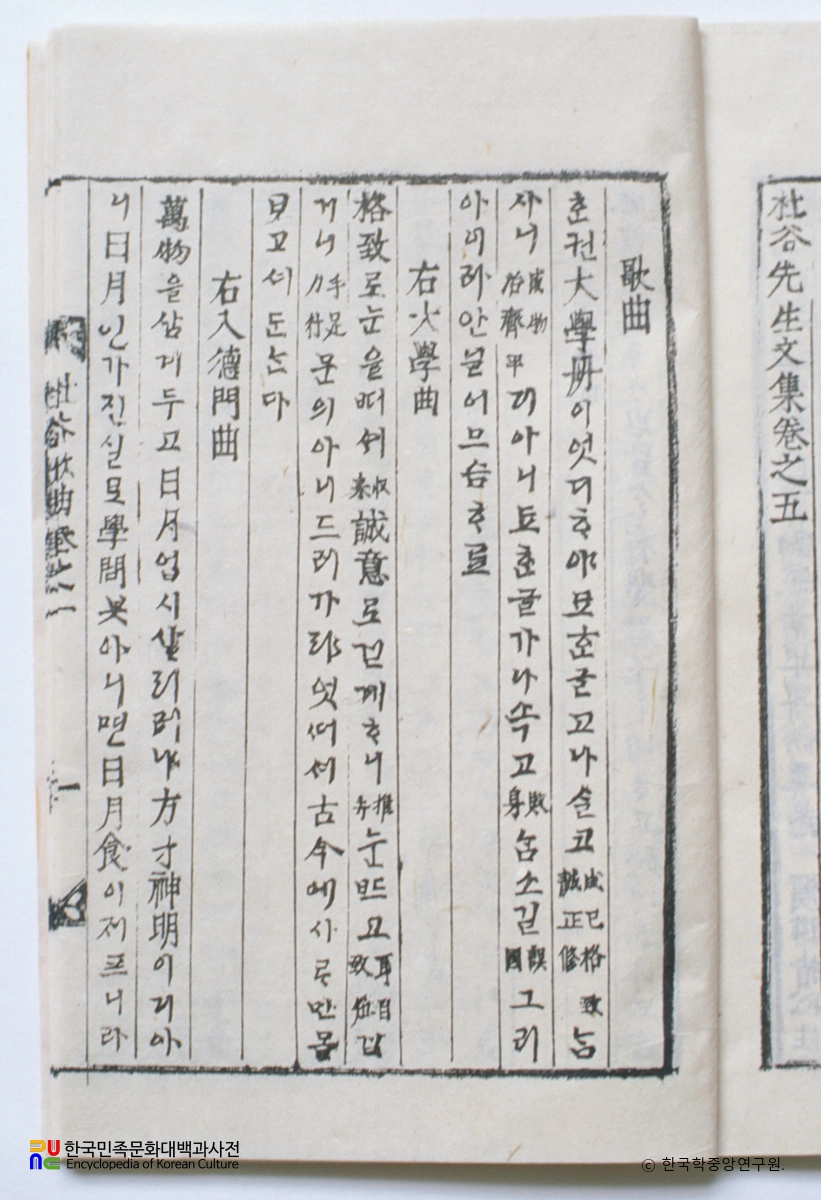 杜谷先生文集卷之五
歌曲
ᄒᆞᆫ권大學冊이엇디ᄒᆞ야묘ᄒᆞᆫ굴고나ᄉᆞᆯ고成己格致誠正修ᄂᆞᆷ
사니成物治齊平긔아니됴ᄒᆞᆫ굴가나속고敗身ᄂᆞᆷ소길誤國그리
아ᄆᆡ라안닐어므슴ᄒᆞ료
右大學曲
格致로눈을ᄠᅥ셔誠意로걷게ᄒᆞ니推눈ᄇᆞᆰ고耳目致知갑
거니手足力行문의아니드러가랴엇ᄯᅥ셔古今에사ᄅᆞᆷ만몰
보고셔도ᄂᆞᆫ다
右入德門曲
萬物을삼게두고日月업시살리러냐方寸神明이긔아
니日月인가진실로學問곳아니면日月食이저프니라
杜谷歌曲
한국민족문화대백과사전
Encyclopedia of Korean Culture
© 한국학중앙연구원.